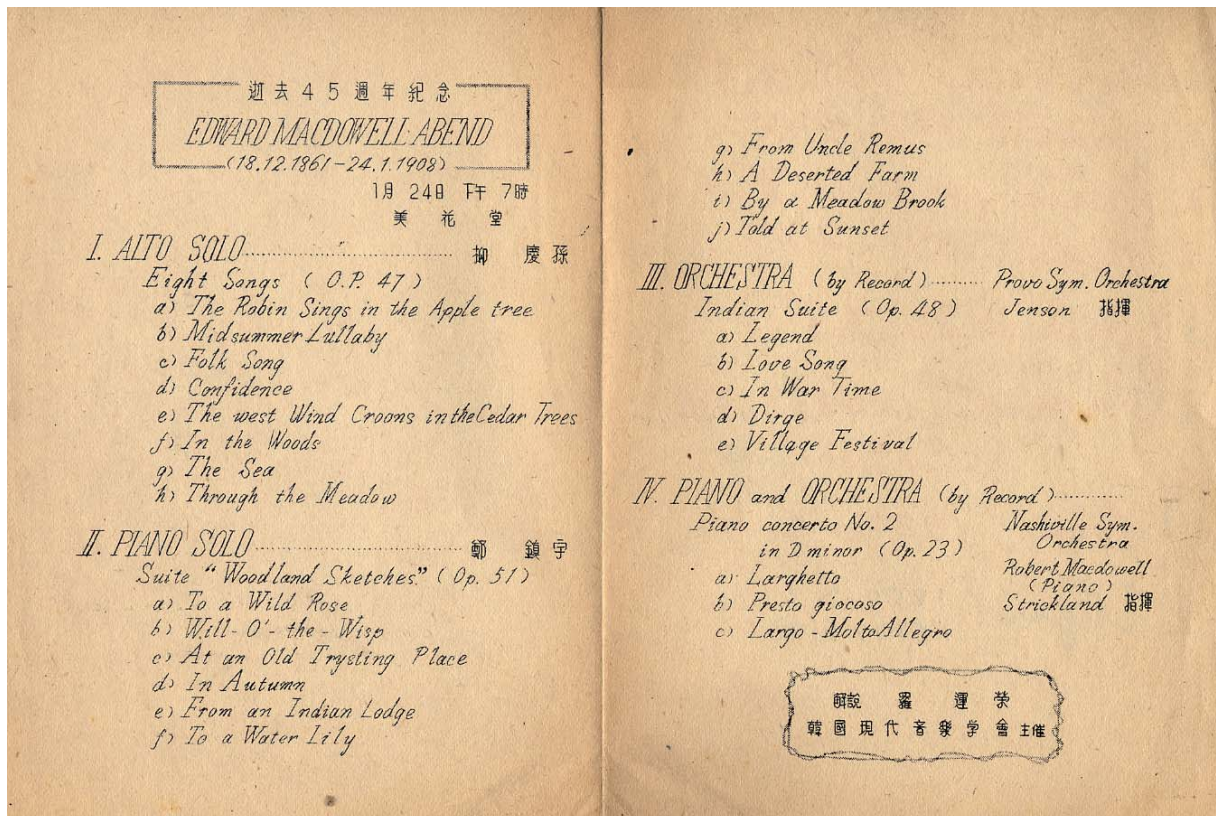 逝去45週年紀念
EDWARD MACDOWELL ABEND
(18.12.1861-24.1.1908)
1月 24日 下午 7時
美花堂
I. ALTO SOLO 柳 慶孫
Eight Songs ( O.P. 47 )
a) The Robin Sings in the Apple tree
b) Midsummer Lullaby
c) Folk Song
d) Confidence
e) The west Wind Croons in the Cedar Trees
f) In the Woods
g) The Sea
h) Through the Meadow
II. PIANO SOLO 鄭 鎮宇
Suite "Woodland Sketches" ( Op. 51 )
a) To a Wild Rose
b) Will-O'-the-Wisp
c) At an Old Trysting Place
d) In Autumn
e) From an Indian Lodge
f) To a Water Lily
g) From Uncle Remus
h) A Deserted Farm
i) By a Meadow Brook
j) Told at Sunset
III. ORCHESTRA (by Record) Provo Sym. Orchestra
Indian Suite (Op. 48) Jenson 指揮
a) Legend
b) Love Song
c) In War Time
d) Dirge
e) Village Festival
IV. PIANO and ORCHESTRA (by Record)
Piano concerto No. 2 Nashiville Sym.
in D minor (Op. 23) Orchestra
a) Larghetto Robert Macdowell
(Piano)
b) Presto giocoso Strickland 指揮
c) Largo-Molto Allegro
解説 羅運榮
韓國現代音楽学會 主催